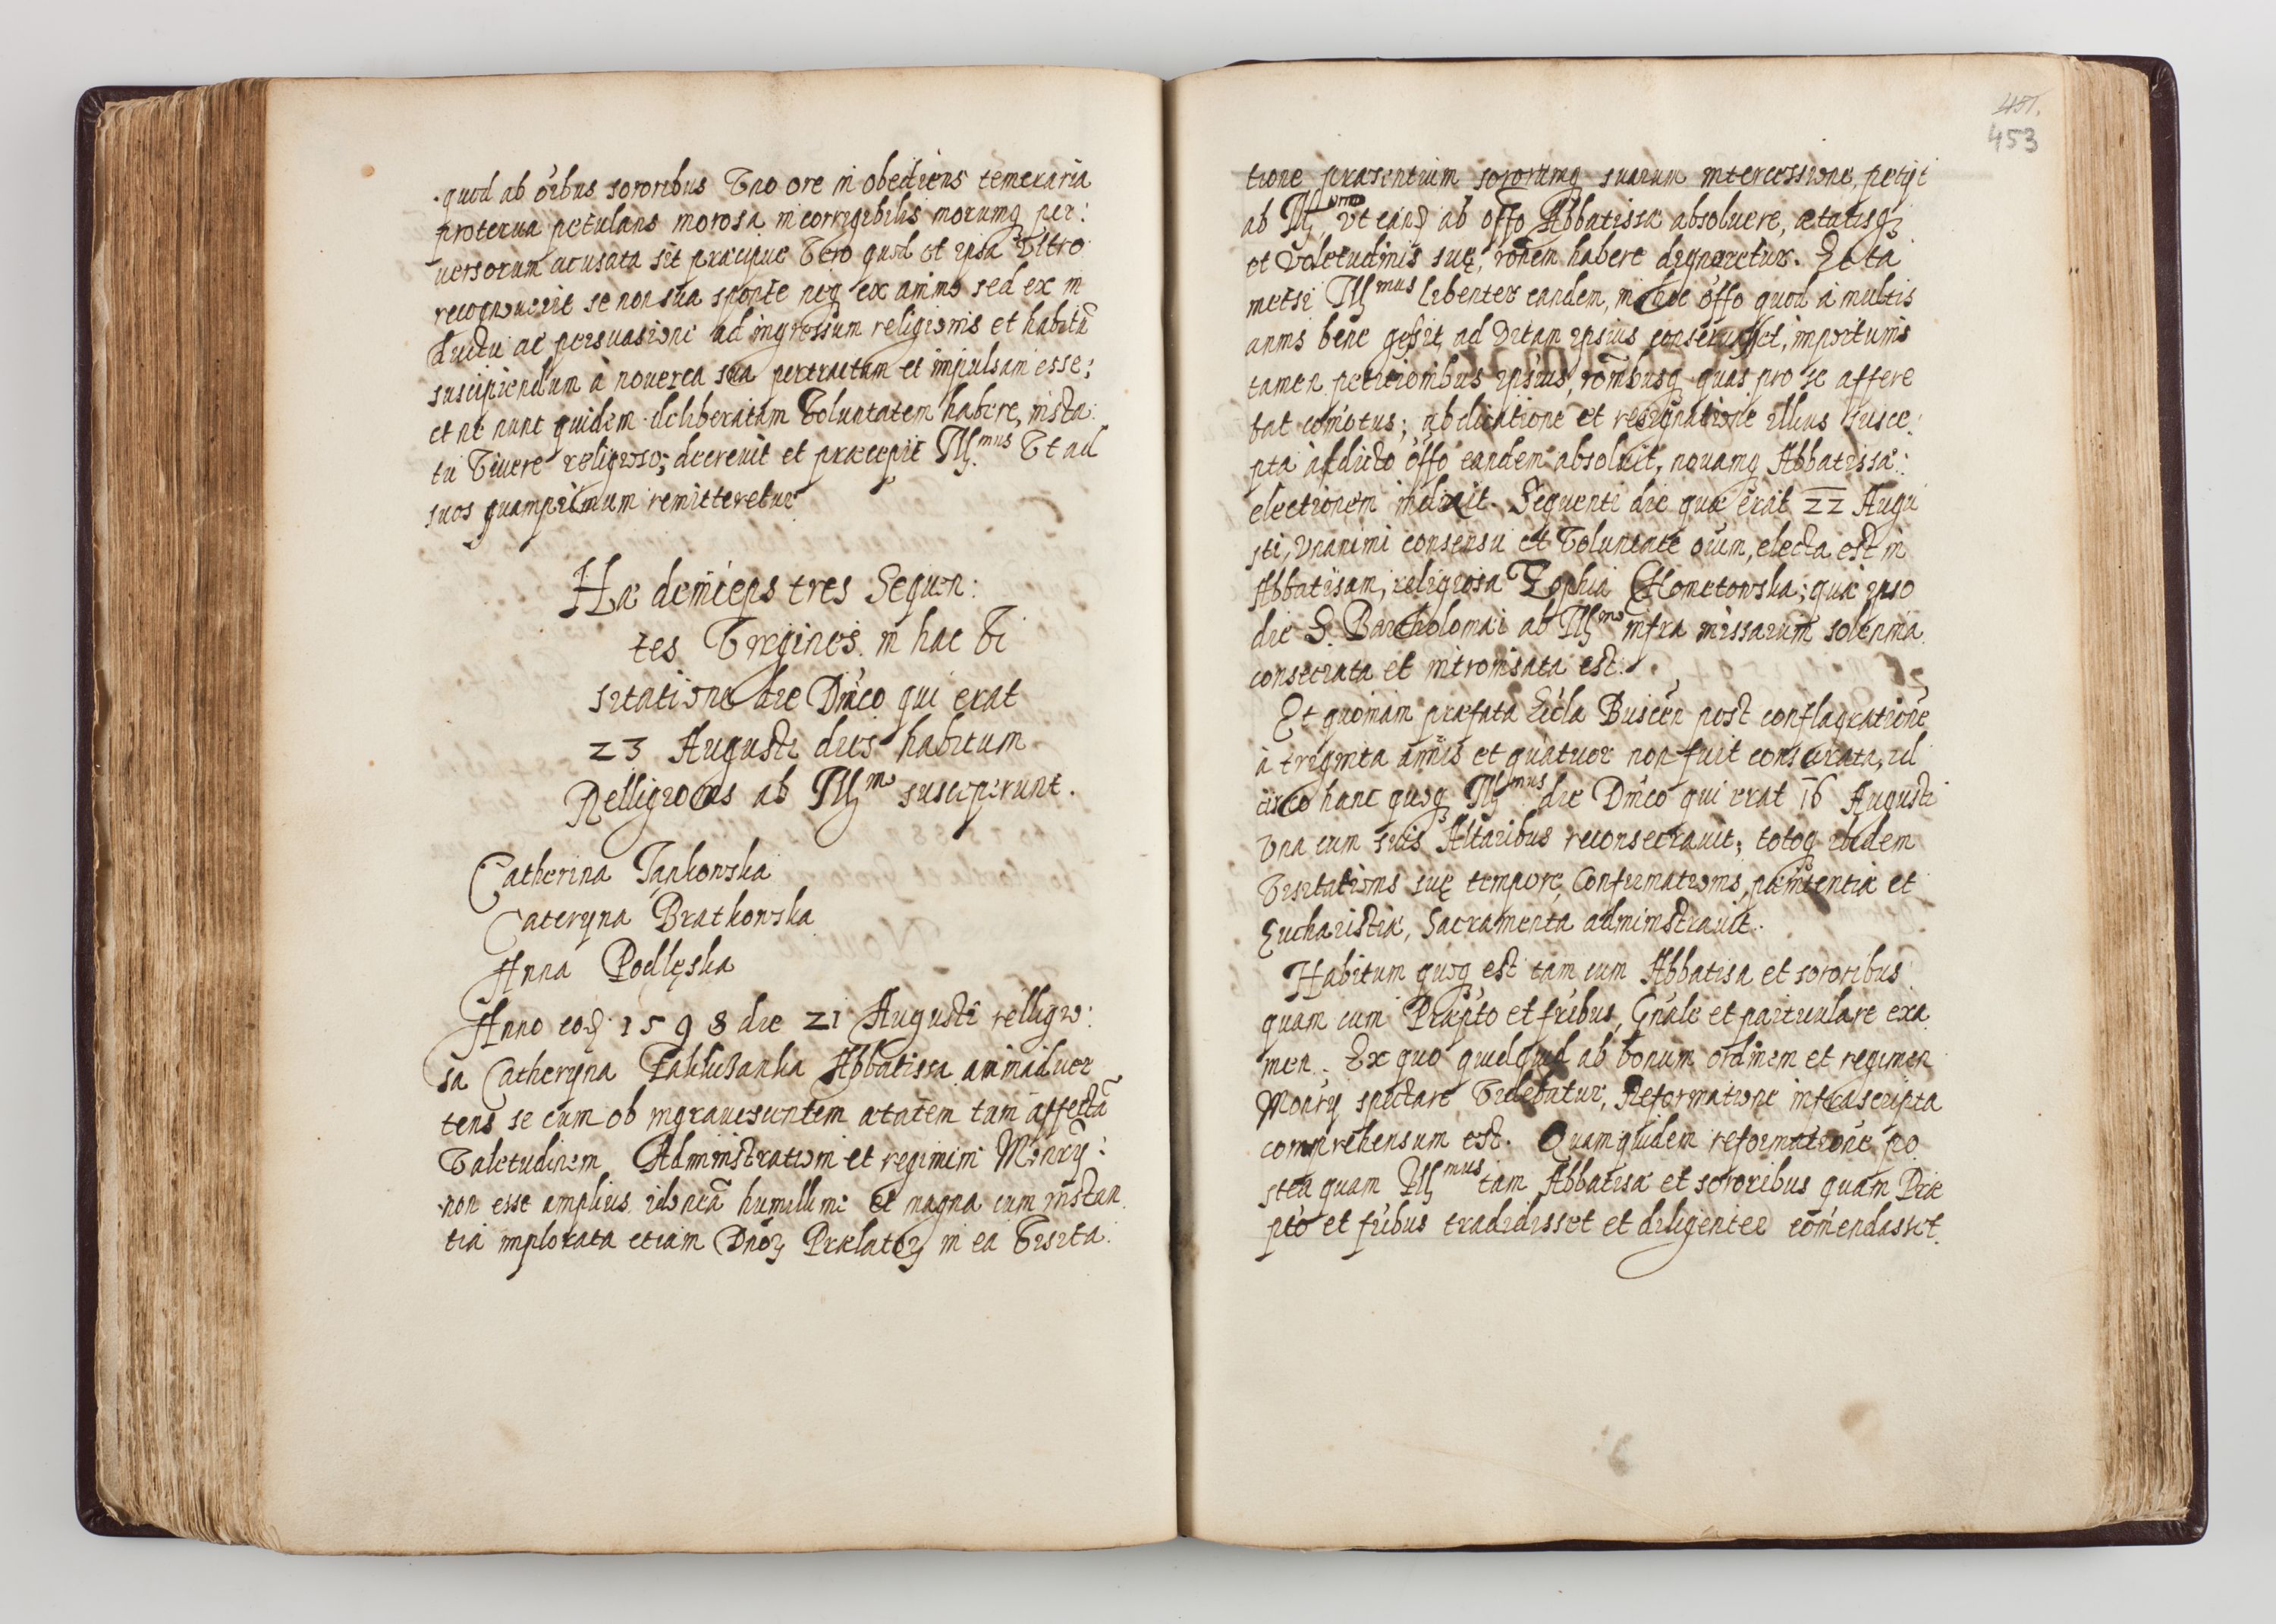 quod ab oĩbus sororibus Vno ore in obediens temeraria
proterua petulans morosa incorrigibilis morumq per:
uersorum acusata sit præcipue Vero quod et ipsa Vltro
recognouerit se non sua sponte neq ex animo sed ex in
ductu ac persuasione ad ingressum religionis et habitũ
suscipiendum à nouerca sua pertractam et impulsam esse;
et ne nunc quidem deliberatam Voluntatem habere, insta:
tu Viuere religioso; decreuit et præcepit Illmus Vt ad
suos quamprimum remitteretur
Hæ deinceps tres Sequen:
tes Vrgines in hac Vi
sitatione die Dnico qui erat
23 Augusti dies habitum
Relligionis ab Illmo susceperunt.
Catherina Jankowska
Cateryna Bratkowska
Anna Podlęska
Anno eod 1598 die 21 Augusti relligio:
sa Catheryna Abbatissa animaduer
tens se cum ob ingrauescentem ætatem tum affectã
Valetudinem Administrationi et regimini Mõnrÿ:
non esse amplius idoneã humillime et magna cum instan
tia implorata etiam Dnõꝝ Prælatoꝝ in ea Visita:
451.
453
tione præsentium sororumq suarum intercessione, petijt
ab Illmo Vt eand ab offo Abbatissæ absoluere, ætatisq
et Valetudinis suę, rõnem habere dignaretur. Et ta
metsi Illmus libenter eandem, in hoc offo quod à multis
annis bene gessit, ad Vitam ipsius conseruasset, importunis
tamen petitionibus ipsius, rõnibusq quas pro se affere
bat comotus; abdicatione et resignatione illius susce:
pta à dicto offo eandem absoluit, nouamq Abbatissæ:
electionem indixit. Sequenti die quæ erat 22 Augu
sti, Vnanimi consensu et Voluntate oium, electa est in
Abbatisam, religiosa Zophia Chometowska; quæ ipso
die S. Bartholomæi ab Illmo infra missarum solenniã
consecrata et intronisata est.
Et quoniam præfata Eccla Buscen post conflagrationẽ
à triginta annis et quatuor non fuit consecrata, id
circo hanc quoq Illmus die Dnico qui erat 16 Augusti
Vna cum suis Altaribus reconsecrauit; totoq ibidem
Visitationis suę tempore, Confirmationis, pænitentiæ et
Eucharistiæ, Sacramenta administrauit.
Habitum quoq est tam cum Abbatisa et sororibus
quam cum Præpto et fribus, Gnale et particulare exa
men. Ex quo quidquid ab bonum ordinem et regimen
Monrÿ spectare Videbatur, Reformatione infrascripta
comprehensum est. Quamquidem reformationẽ po
stea quam Illmus tam Abbatisæ et sororibus quam Præ
pto et fribus tradidisset et diligenter comendasset.